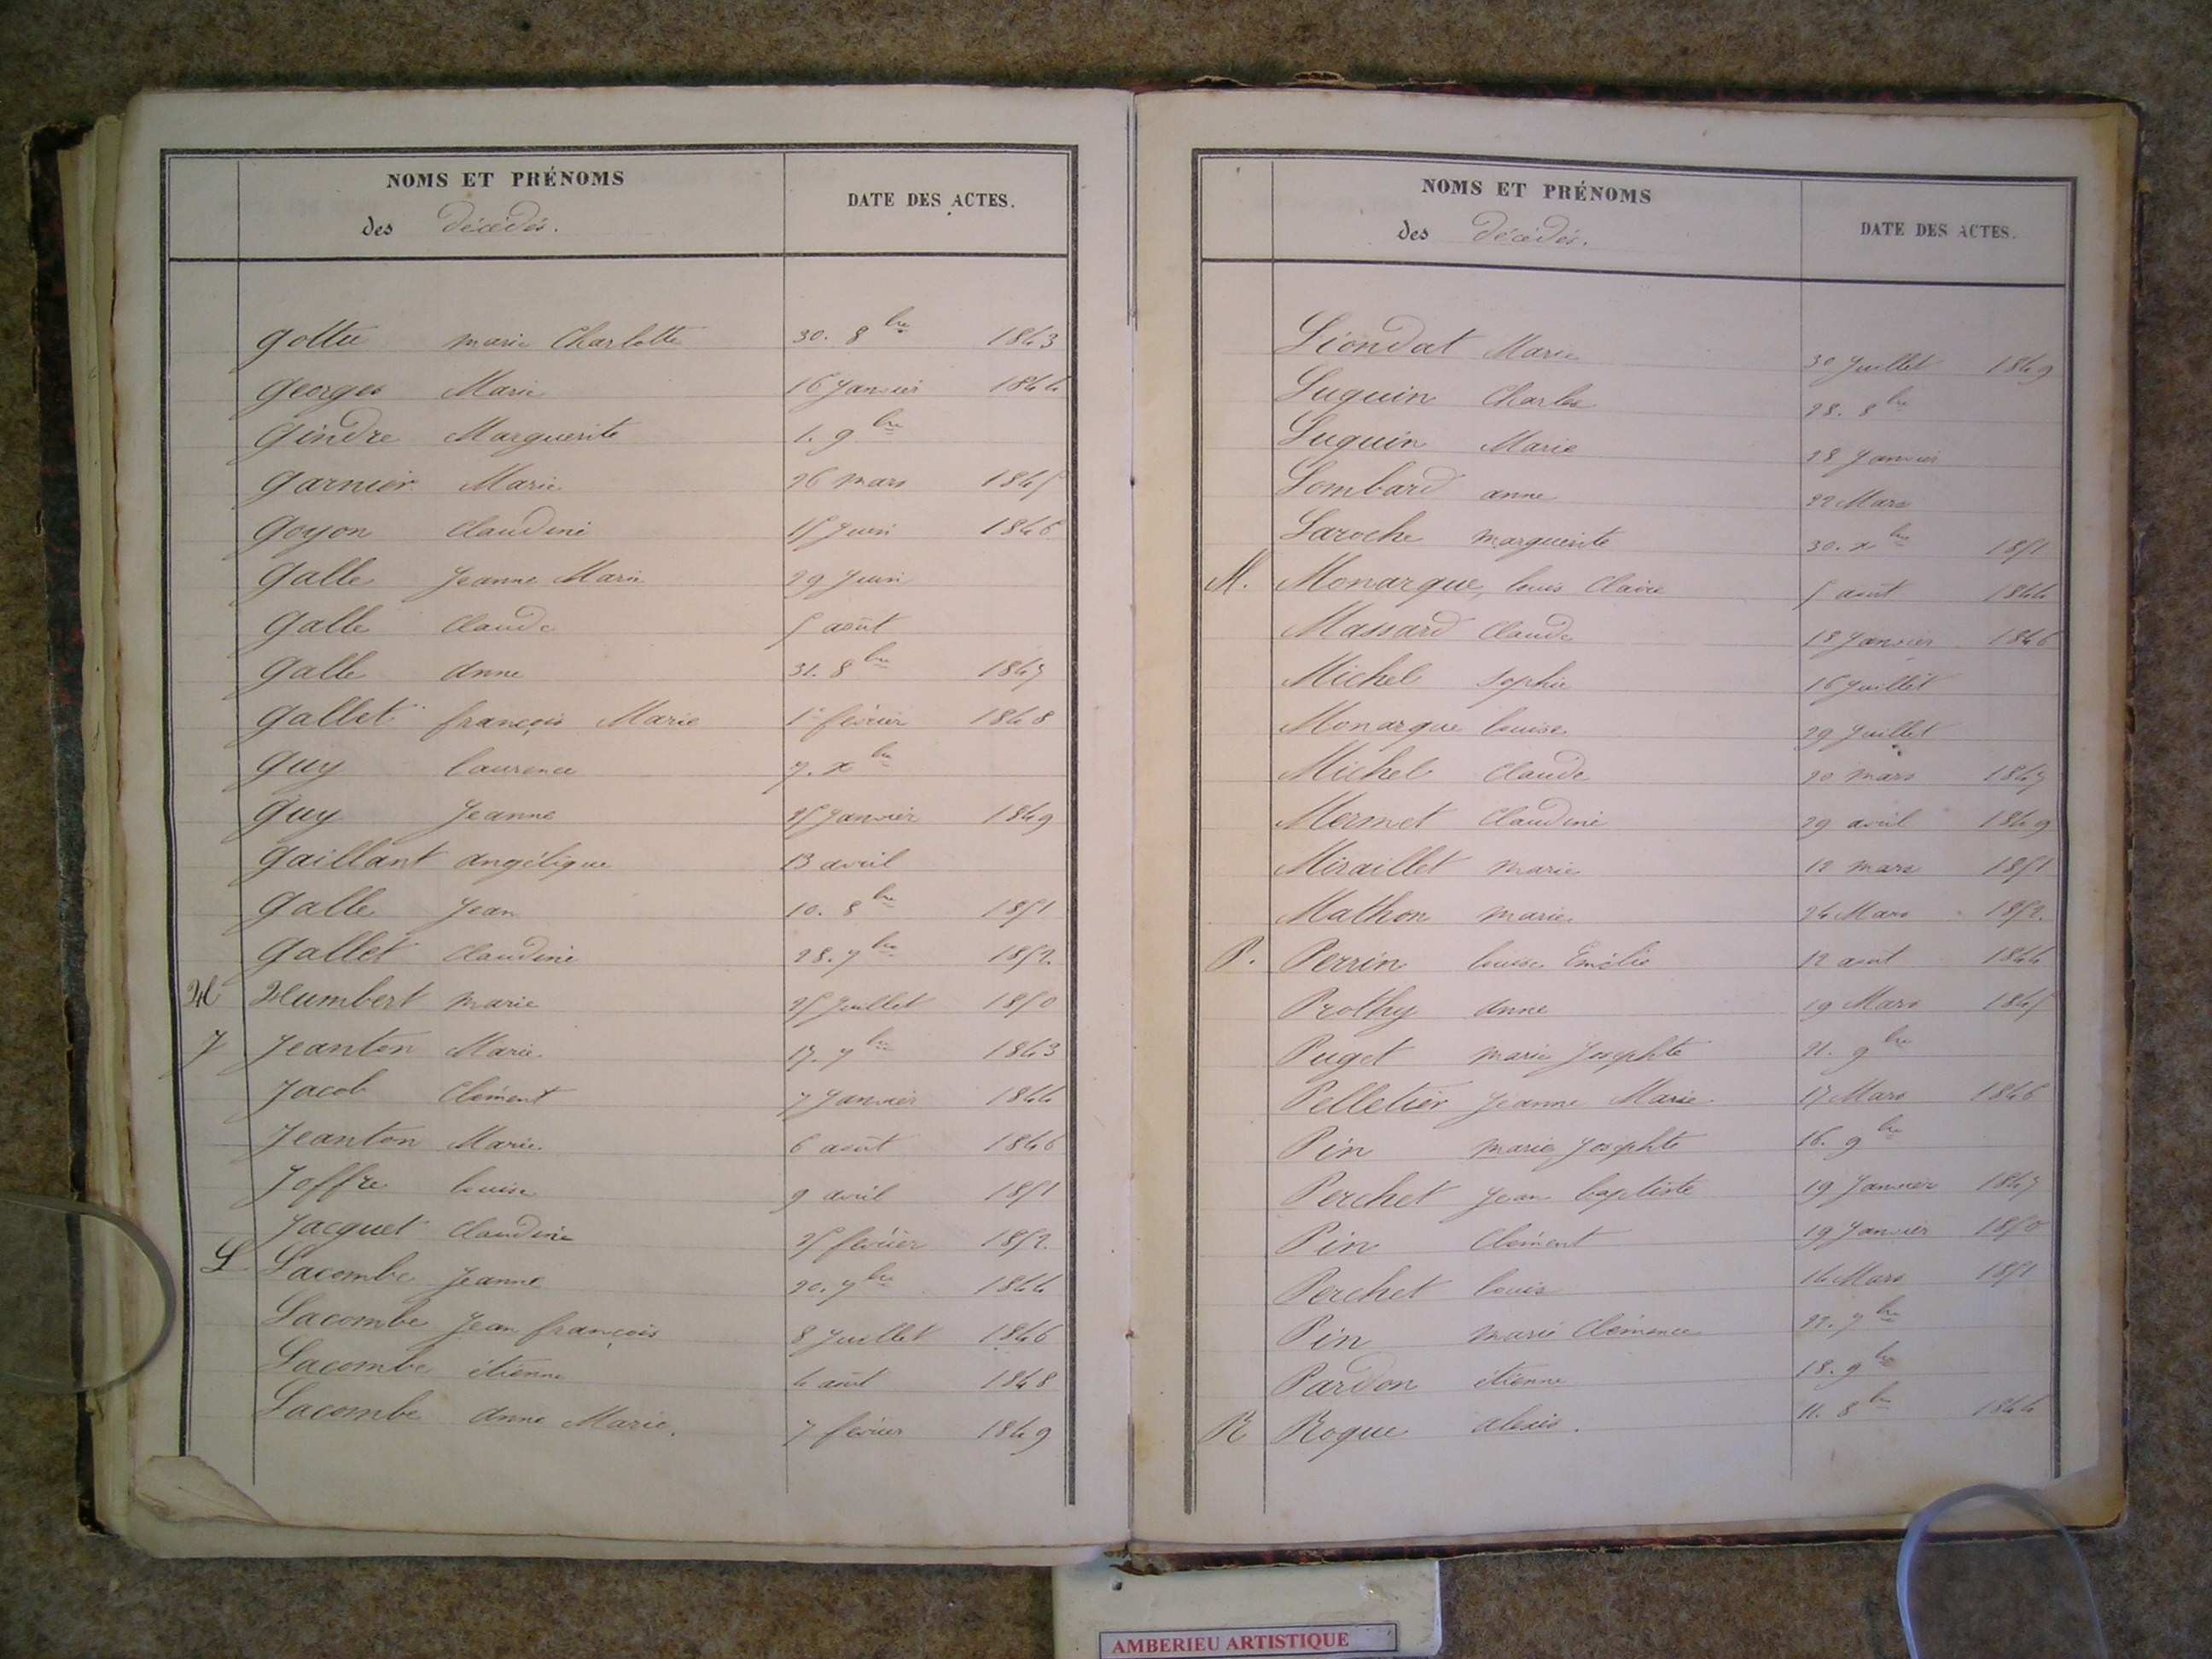 NOMS ET PRÉNOMS
des Décédés.
DATE DES ACTES.
Gottu marie Charlotte 30. 8bre 1843
Georges Marie 16 Janvier 1844
Gindre Marguerite 1. 9bre
Garnier Marie 26 mars 1845
Goyon Claudine 15 Juin 1846
Galle Jeanne Marie 29 Juin
Galle Claude 5 août
Galle Anne 31. 8bre 1847
Gallet françois Marie 1er février 1848
Guy laurence 7. xbre
Guy Jeanne 25 Janvier 1849
Gaillant Angélique 13 avril
Galle Jean 10. 8bre 1851
Gallet Claudine 28. 7bre 1852.
H Humbert marie 25 Juillet 1850
J Jeanton Marie 17. 7bre 1843
Jacob Clément 7 Janvier 1844
Jeanton Marie. 6 août 1846
Joffre louise 9 avril 1851
Jacquet Claudine 25 février 1852.
L Lacombe Jeanne 20. 7bre 1844
Lacombe Jean françois 8 Juillet 1846
Lacombe étienne 4 août 1848
Lacombe Anne Marie. 7 février 1849
NOMS ET PRÉNOMS
des Décédés.
DATE DES ACTES.
Liondat Marie 30 Juillet 1849
Luguin Charles 28. 8bre
Luguin Marie 28 Janvier
Lombard anne 22 Mars
Laroche marguerite 30. xbre 1851
M. Monarque, louis Claire 5 août 1844
Massard Claude 18 Janvier 1846
Michel Sophie 16 Juillet
Monarque louise. 29 Juillet
Michel Claude 20 mars 1847
Mermet Claudine 29 avril 1849
Miraillet marie 12 mars 1851
Mathon marie. 24 Mars 1852.
P. Perrin louise Emélie 12 août 1844
Prothy Anne 19 Mars 1845
Puget marie Josephte 21. 9bre
Pelletier Jeanne Marie 17 Mars 1846
Pin marie Josephte 16. 9bre
Perchet Jean baptiste 19 Janvier 1847
Pin Clément 19 Janvier 1850
Perchet louis 14 Mars 1851
Pin marie Clémence 22. 7bre
Pardon étienne 18. 9bre
R Roque alexis. 11. 8bre 1844
AMBERIEU ARTISTIQUE